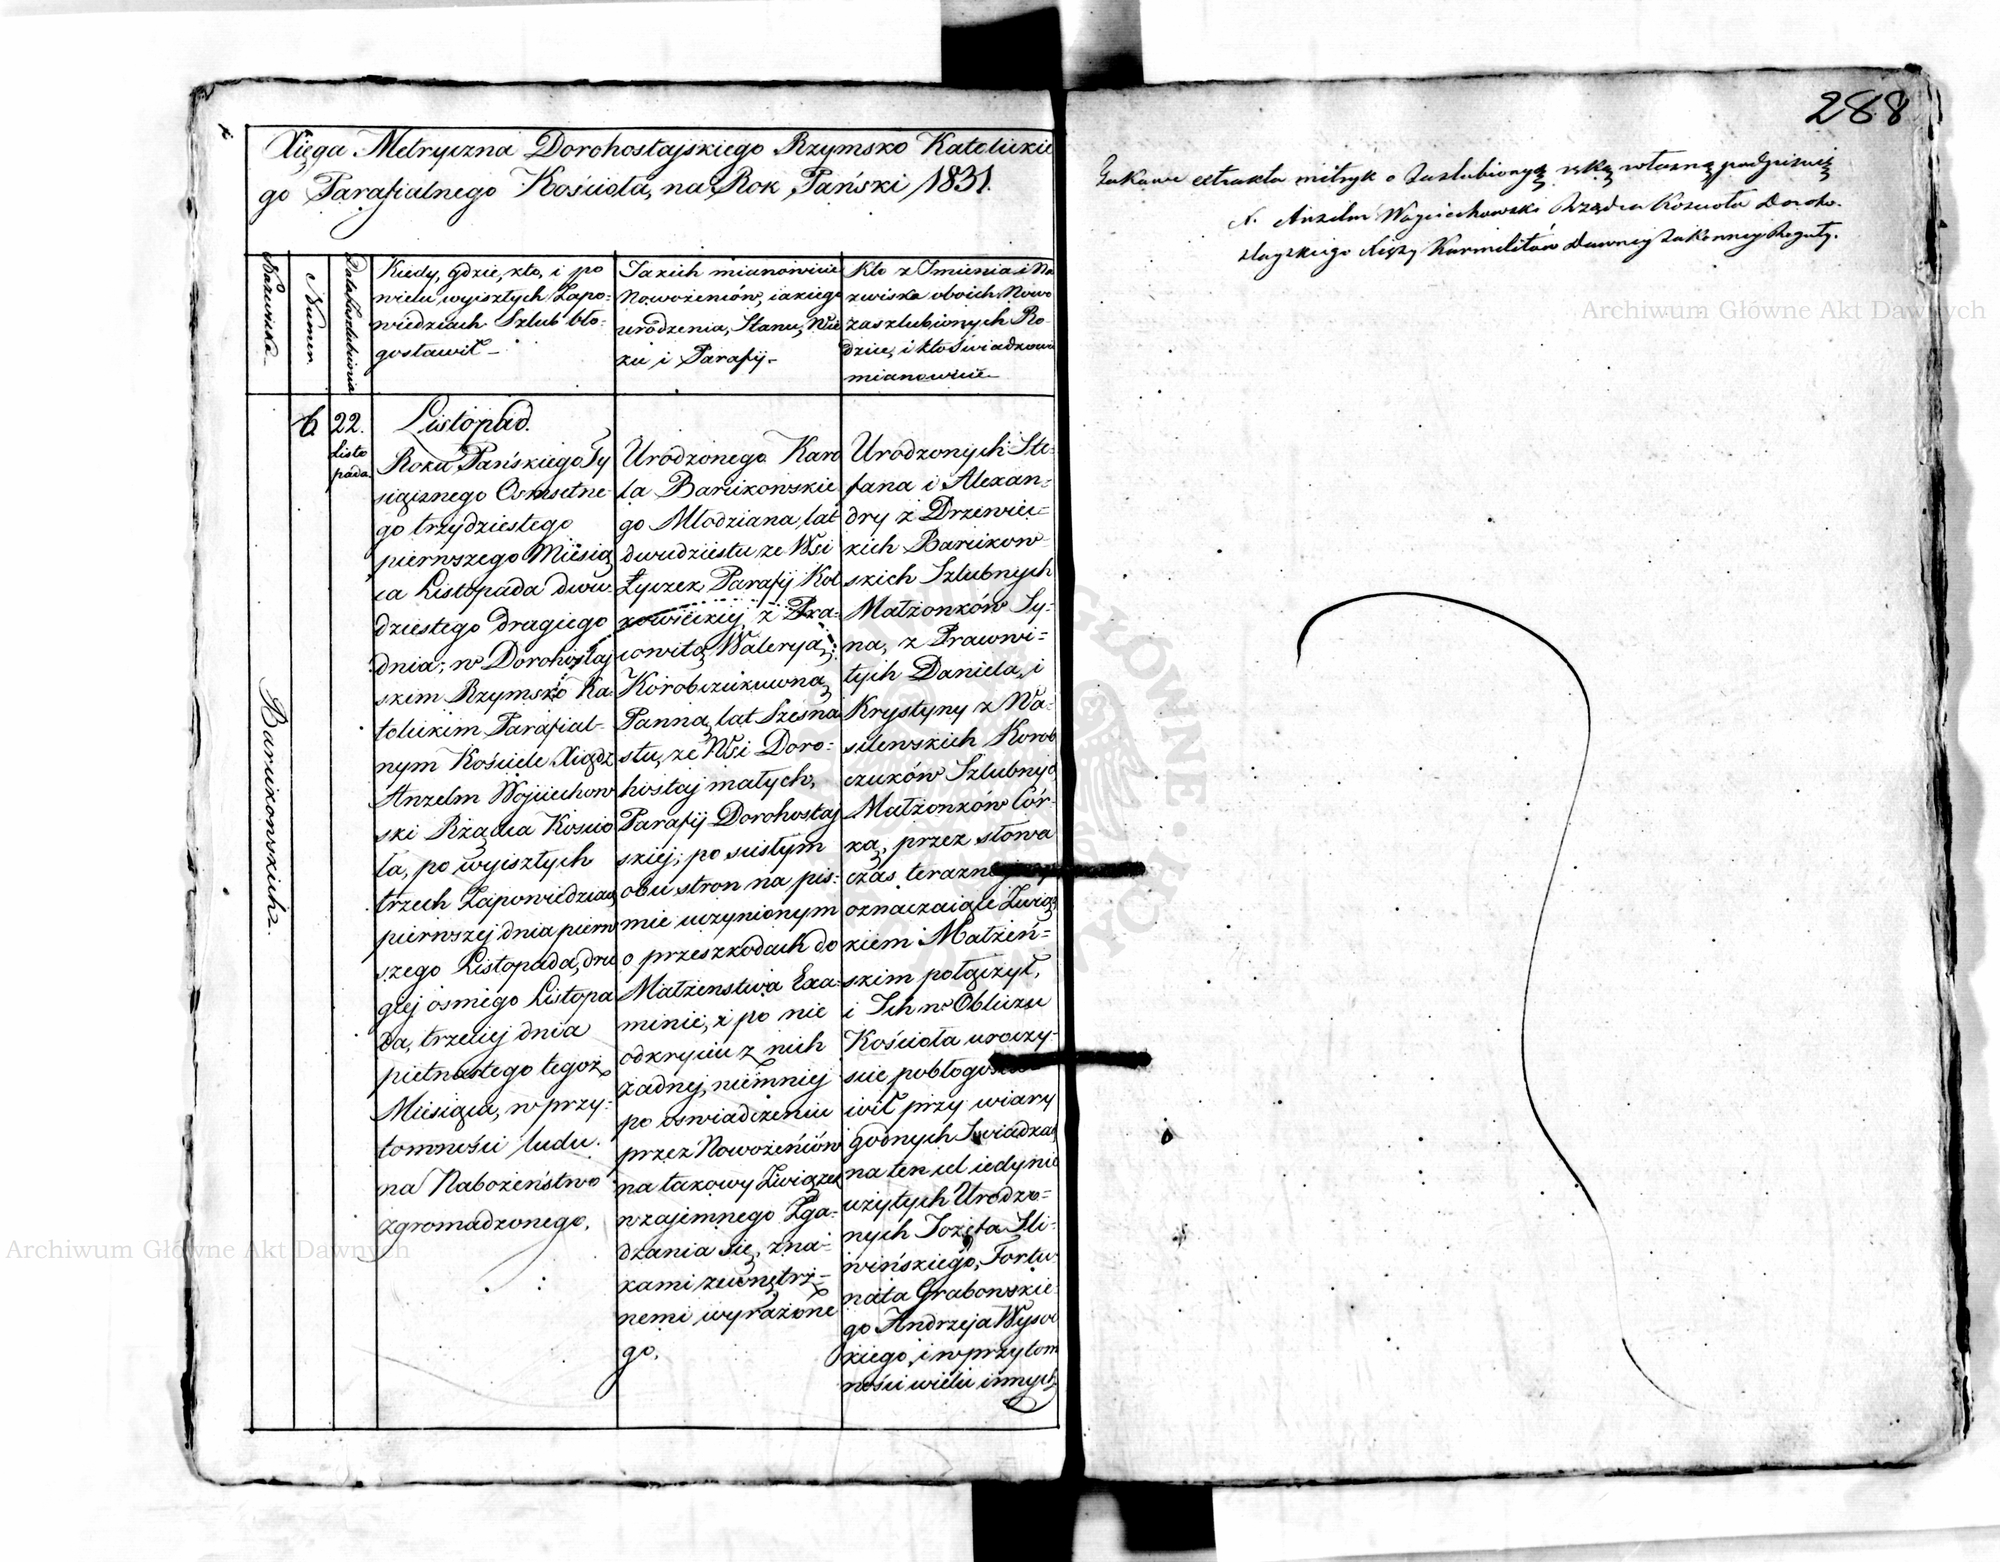 288
Xięga Metryczna Dorohostajskiego Rzymsko Katolickie
go Parafialnego Kościoła, na Rok Pański 1831.
Nazwiska
Numer
Data Zaslubienia
Kiedy, gdzie, kto, i po
wielu wyiszłych Zapo-
wiedziach Szlub bło-
gosławił
Jakich mianowicie
Nowożeniów, iakiego
urodzenia, Stanu, Wie
ku i Parafij
Kto z Imienia i Na
zwiska oboich Nowo
zaszlubionych Ro
dzice, i kto Świadkowie
mianowicie
Barcikowskich
6
22.
Listo
pada
Listopad.
Roku Pańskiego Ty
siącznego Osmsetne
go trzydziestego
pierwszego Miesią
ca Listopada dwu-
dziestego drugiego
dnia; w Dorohostaj
skim Rzymsko Ka
tolickim Parafial-
nym Kościele Xiądz
Anzelm Wojciechow
ski Rządca Koscio
ła, po wyiszłych
trzech Zapowiedziach
pierwszej dnia pierw
szego Listopada, dru
giej osmego Listopa
da, trzeciej dnia
pietnastego tegoż
Miesiąca, w przy-
tomności ludu
na Nabożeństwo
zgromadzonego.
Urodzonego Karo
la Barcikowskie
go Młodziana, lat
dwudziestu ze Wsi
Łyczek, Parafij Koł
kowickiej, z Pra-
cowitą Waleryą
Korobczukuwną
Panną, lat Szesna
stu, ze Wsi Doro-
hostaj małych,
Parafij Dorohostaj
skiej; po scisłym
obu stron na pis-
mie uczynionym
o przeszkodach do
Małżenstwa Exa-
minie, i po nie
odkryciu z nich
żadnej, niemniej
po oswiadczeniu
przez Nowożeniów
na takowy Związek
wzajemnego Zga-
dzania się, zna-
kami zewnętrż-
nemi wyrażone
go.
Urodzonych Ste-
fana i Alexan-
dry z Drzewiec-
kich Barcikow-
skich Szlubnych
Małżonków Sy-
na, z Pracowi-
tych Daniela, i
Krystyny z Wa-
silewskich Korob
czuków Szlubnych
Małżonków Cór-
ką, przez słowa
czas terazniejszy
oznaczaiące Zwiąs
kiem Małżeń-
skim połączył,
i Ich w Obliczu
Kościoła uroczy-
scie pobłogosła
wił przy wiary
godnych Swiadkach
na ten cel iedynie
użytych Urodzo-
nych Jozefa Śli-
wińskiego, Fortu
nata Grabowskie
go Andrzeja Wysoc
kiego, i w przytom
ności wielu innych
Takowe extrakta metryk o Zaslubionych ręką własną podpisuię
X. Anzelm Woyciechowski Rządca Koscioła Doroho-
stayskiego Xięży Karmelitów Dawney Zakonney Reguły.
Archiwum Główne Akt Dawnych
Archiwum Główne Akt Dawnych